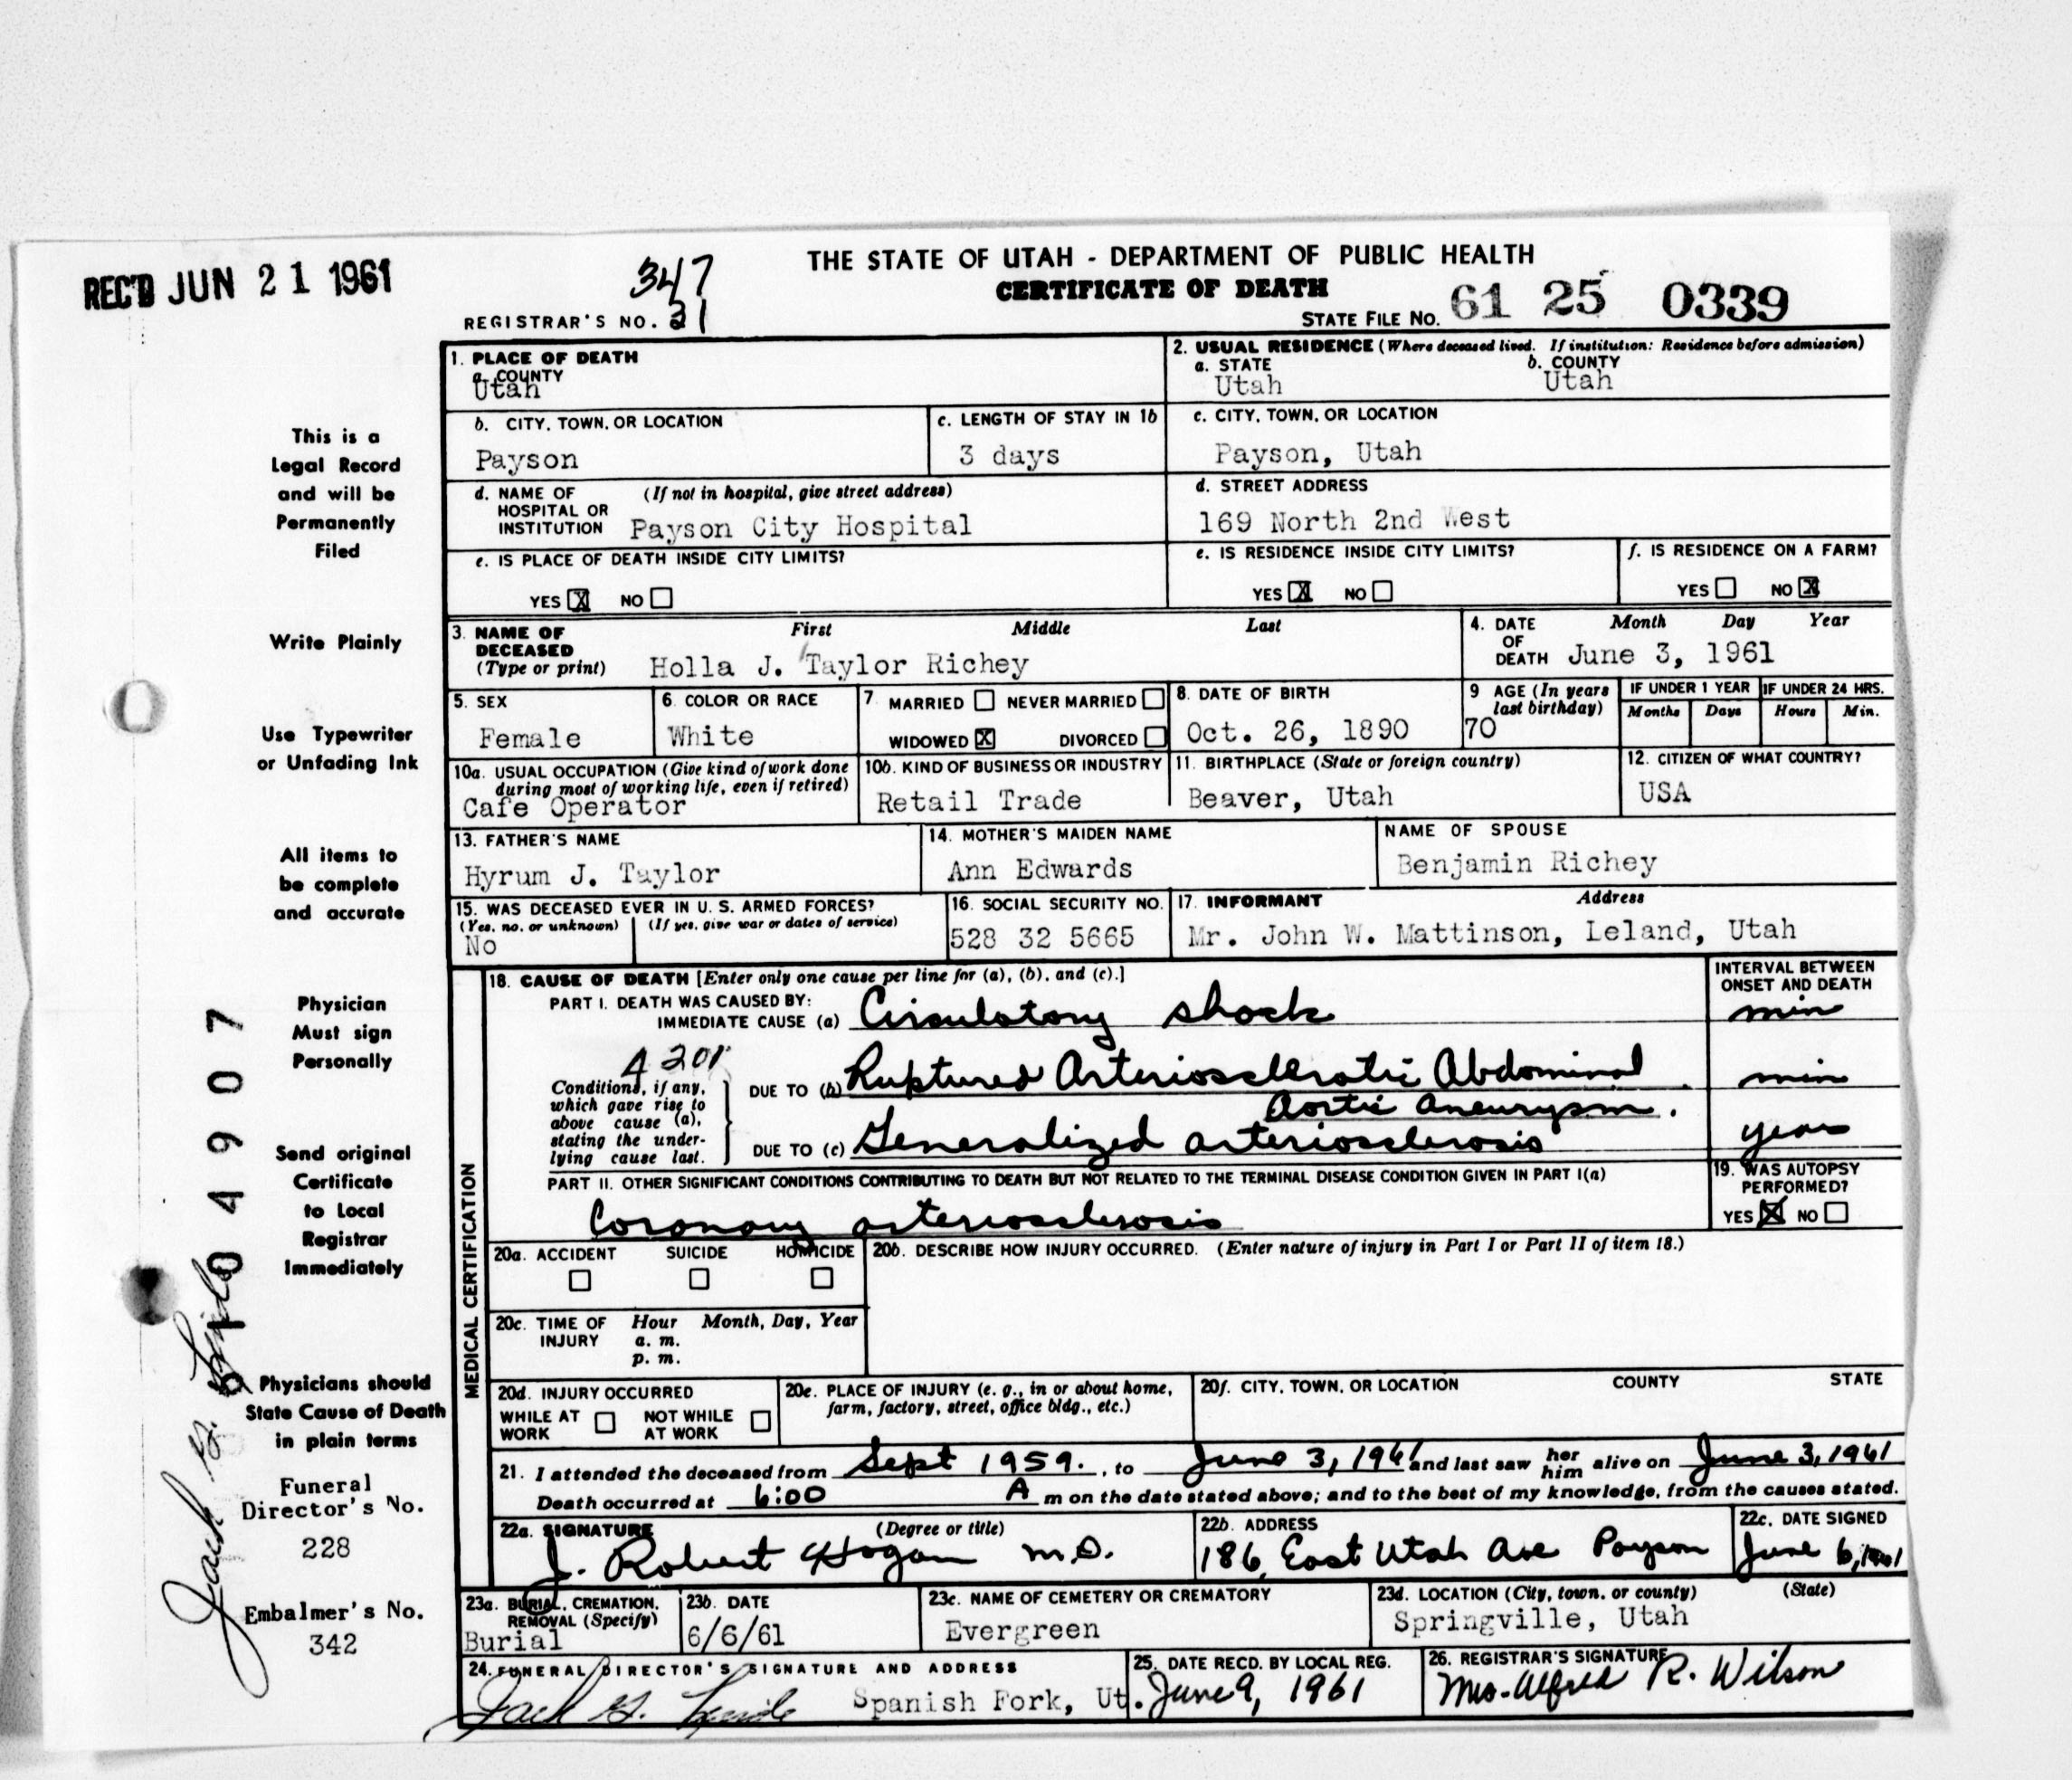 REC'D JUN 21 1961
347
THE STATE OF UTAH - DEPARTMENT OF PUBLIC HEALTH
CERTIFICATE OF DEATH
REGISTRAR'S NO. 31
STATE FILE NO. 61 25 0339
1. PLACE OF DEATH
a. COUNTY
Utah
2. USUAL RESIDENCE (Where deceased lived. If institution: Residence before admission)
a. STATE b. COUNTY
Utah Utah
b. CITY, TOWN, OR LOCATION
Payson
c. LENGTH OF STAY IN 1b
3 days
c. CITY, TOWN, OR LOCATION
Payson, Utah
d. NAME OF HOSPITAL OR INSTITUTION (If not in hospital, give street address)
Payson City Hospital
d. STREET ADDRESS
169 North 2nd West
e. IS PLACE OF DEATH INSIDE CITY LIMITS?
YES X NO
e. IS RESIDENCE INSIDE CITY LIMITS?
YES X NO
f. IS RESIDENCE ON A FARM?
YES NO X
3. NAME OF DECEASED (Type or print)
First Middle Last
Holla J. Taylor Richey
4. DATE OF DEATH Month Day Year
June 3, 1961
5. SEX
Female
6. COLOR OR RACE
White
7 MARRIED NEVER MARRIED
WIDOWED X DIVORCED
8. DATE OF BIRTH
Oct. 26, 1890
9 AGE (In years last birthday)
70
IF UNDER 1 YEAR IF UNDER 24 HRS.
Months Days Hours Min.
10a. USUAL OCCUPATION (Give kind of work done during most of working life, even if retired)
Cafe Operator
10b. KIND OF BUSINESS OR INDUSTRY
Retail Trade
11. BIRTHPLACE (State or foreign country)
Beaver, Utah
12. CITIZEN OF WHAT COUNTRY?
USA
13. FATHER'S NAME
Hyrum J. Taylor
14. MOTHER'S MAIDEN NAME
Ann Edwards
NAME OF SPOUSE
Benjamin Richey
15. WAS DECEASED EVER IN U. S. ARMED FORCES?
(Yes, no, or unknown) (If yes, give war or dates of service)
No
16. SOCIAL SECURITY NO.
528 32 5665
17. INFORMANT Address
Mr. John W. Mattinson, Leland, Utah
MEDICAL CERTIFICATION
18. CAUSE OF DEATH [Enter only one cause per line for (a), (b), and (c).]
INTERVAL BETWEEN ONSET AND DEATH
PART I. DEATH WAS CAUSED BY:
IMMEDIATE CAUSE (a) Circulatory shock min
A 201
Conditions, if any, which gave rise to above cause (a), stating the underlying cause last.
DUE TO (b) Ruptured Arteriosclerotic Abdominal min
Aortic Aneurysm.
DUE TO (c) Generalized arteriosclerosis years
PART II. OTHER SIGNIFICANT CONDITIONS CONTRIBUTING TO DEATH BUT NOT RELATED TO THE TERMINAL DISEASE CONDITION GIVEN IN PART I(a)
Coronary arteriosclerosis
19. WAS AUTOPSY PERFORMED?
YES X NO
20a. ACCIDENT SUICIDE HOMICIDE
20b. DESCRIBE HOW INJURY OCCURRED. (Enter nature of injury in Part I or Part II of item 18.)
20c. TIME OF INJURY Hour Month, Day, Year
a. m.
p. m.
20d. INJURY OCCURRED
WHILE AT WORK NOT WHILE AT WORK
20e. PLACE OF INJURY (e. g., in or about home, farm, factory, street, office bldg., etc.)
20f. CITY, TOWN, OR LOCATION COUNTY STATE
21. I attended the deceased from Sept 1959. , to June 3, 1961 and last saw her him alive on June 3, 1961
Death occurred at 6:00 A m on the date stated above; and to the best of my knowledge, from the causes stated.
22a. SIGNATURE (Degree or title)
J. Robert Hogan M.D.
22b. ADDRESS
186 East Utah Ave Payson
22c. DATE SIGNED
June 6, 1961
23a. BURIAL, CREMATION, REMOVAL (Specify)
Burial
23b. DATE
6/6/61
23c. NAME OF CEMETERY OR CREMATORY
Evergreen
23d. LOCATION (City, town, or county) (State)
Springville, Utah
24. FUNERAL DIRECTOR'S SIGNATURE AND ADDRESS
Jack G. Spanish Fork, Ut.
25. DATE RECD. BY LOCAL REG.
June 9, 1961
26. REGISTRAR'S SIGNATURE
Mrs. Alfred R. Wilson
This is a
Legal Record
and will be
Permanently
Filed
Write Plainly
Use Typewriter
or Unfading Ink
All items to
be complete
and accurate
Physician
Must sign
Personally
Send original
Certificate
to Local
Registrar
Immediately
Physicians should
State Cause of Death
in plain terms
Funeral
Director's No.
228
Embalmer's No.
342
Jack G.
04907